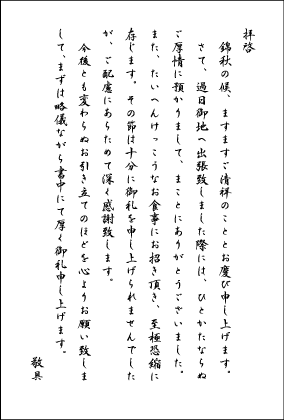 拝啓
錦秋の候、ますますご清祥のこととお慶び申し上げます。
さて、過日御地へ出張致しました際には、ひとかたならぬ
ご厚情に預かりまして、まことにありがとうございました。
また、たいへんけっこうなお食事にお招き頂き、至極恐縮に
存じます。その節は十分に御礼を申し上げられませんでした
が、ご配慮にあらためて深く感謝致します。
今後とも変わらぬお引き立てのほどを心よりお願い致しま
して、まずは略儀ながら書中にて厚く御礼申し上げます。
敬具